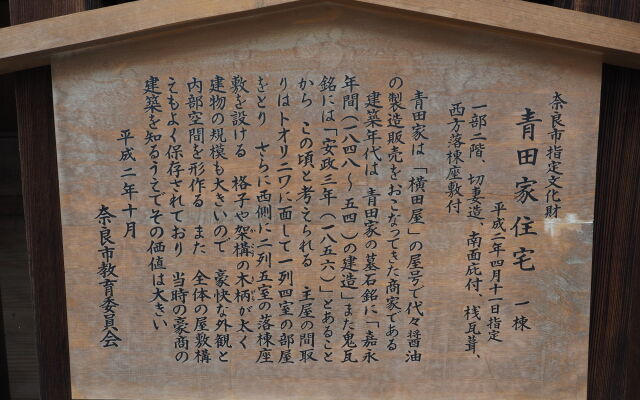 奈良市指定文化財
青田家住宅 一棟
平成二年四月十一日指定
一部二階、切妻造、南面庇付、桟瓦葺、
西方落棟座敷付
青田家は「横田屋」の屋号で代々醤油
の製造販売をおこなってきた商家である
建築年代は 青田家の墓石銘に「嘉永
年間(一八四八〜五四)の建造」また鬼瓦
銘には「安政三年(一八五六)」とあること
から この頃と考えられる 主屋の間取
りはトオリニワに面して一列四室の部屋
をとり さらに西側に二列五室の落棟座
敷を設ける 格子や架構の木柄が太く
建物の規模も大きいので 豪快な外観と
内部空間を形作る また 全体の屋敷構
えもよく保存されており 当時の豪商の
建築を知るうえでその価値は大きい
平成二年十月
奈良市教育委員会